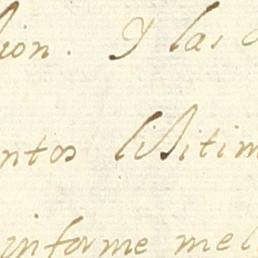 lion. Y las
ntos lisitim
informe mel